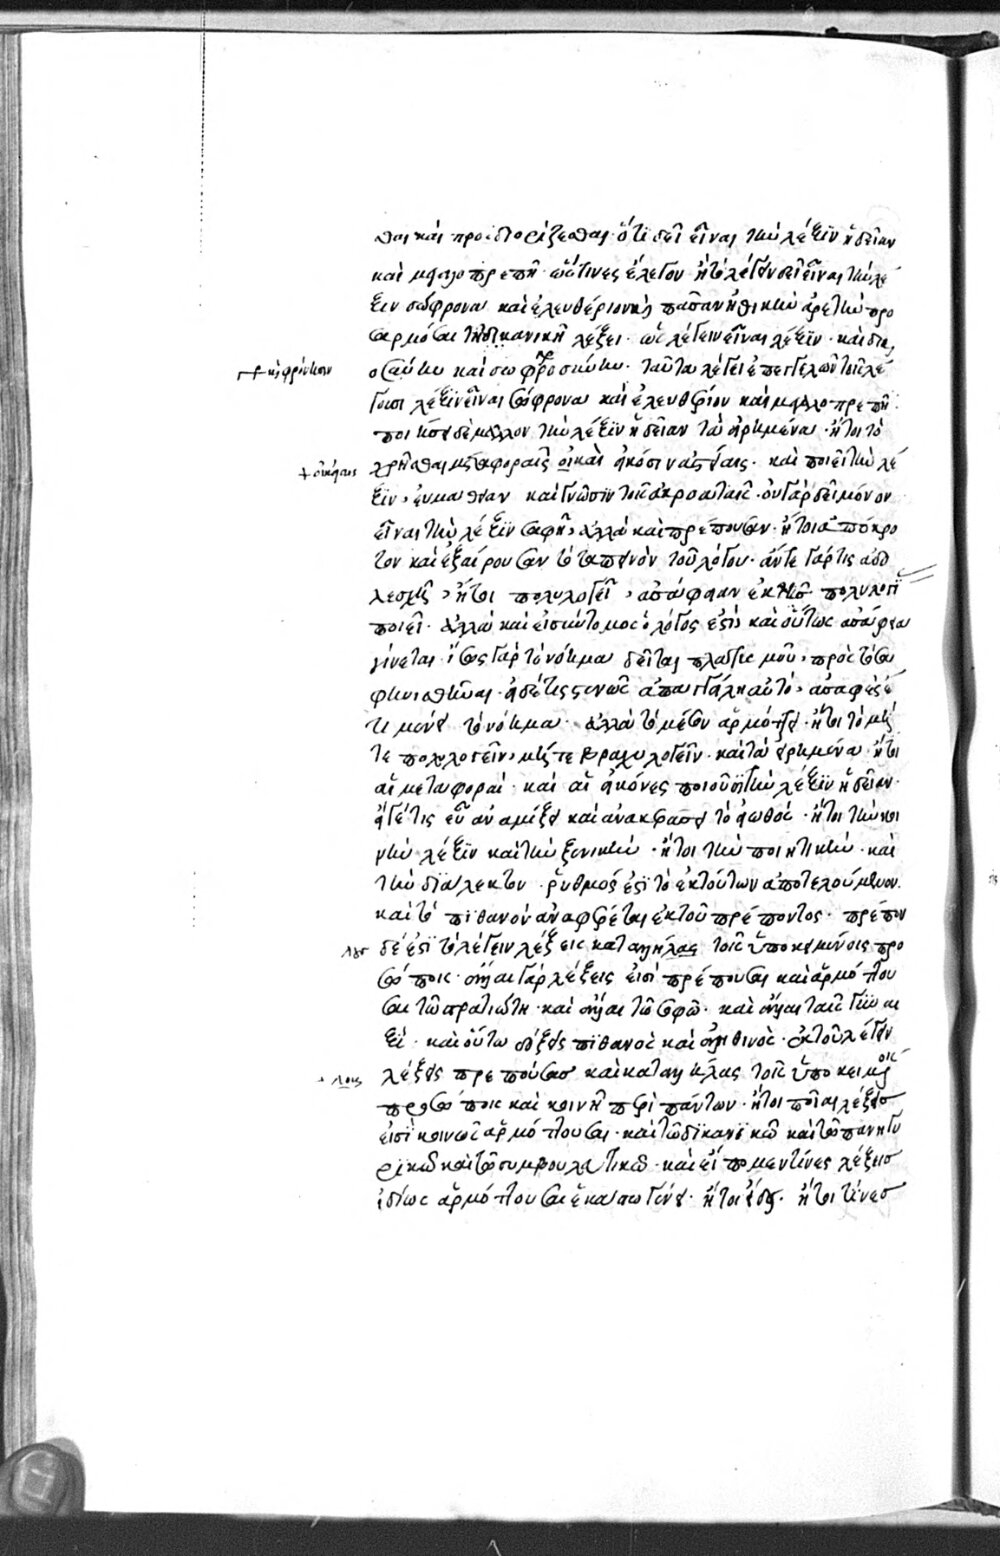 θαι καὶ προσδιορίζεσθαι ὅτι δεῖ εἶναι τὴν λέξιν ἡδεῖαν
καὶ μεγαλοπρεπῆ· ὥς τινες ἔλεγον ἢ τὸ λέγειν δεῖ εἶναι τὴν λέ
ξιν σώφρονα καὶ ἐλευθέριον καὶ πᾶσαν ἠθικὴν ἀρετὴν προ
σαρμόσαι τῇ δικανικῇ λέξει· ὡς λέγειν εἶναι λέξιν· καὶ δι
καὶ σωφροσύνην· ταῦτα λέγει ἐπεγγελῶν τοῖς λέ
γουσι λέξιν εἶναι σώφρονα καὶ ἐλευθέριον καὶ μεγαλοπρεπῆ·
ποιήσει δὲ μᾶλλον τὴν λέξιν ἡδεῖαν τὰ εἰρημένα· ἤτοι τὸ
χρῆσθαι μεταφοραῖς καὶ εἰκόσιν ἀστείαις· καὶ ποιεῖ τὴν λέ
ξιν εὐμαθῆ καὶ γνῶσιν τοῖς ἀκροαταῖς· οὐ γὰρ δεῖ μόνον
εἶναι τὴν λέξιν σαφῆ, ἀλλὰ καὶ πρέπουσαν· ἤτοι ἀπόκρο
τον καὶ ἐξαίρουσαν τὸ ταπεινὸν τοῦ λόγου· ἄν τε γάρ τις ἀδο
λεσχῇ, ἤτοι πολυλογεῖ, ἀσάφειαν ἐκ τῆς πολυλογί
ποιεῖ· ἀλλὰ καὶ εἰ σύντομος ὁ λόγος ἐστὶ καὶ οὕτως ἀσάφεια
γίνεται· ἴσως γὰρ τὸ νόημα δεῖται πλατυσμοῦ, πρὸς τὸ σα
φηνισθῆναι· εἰ δέ τις στενῶς ἀπαγγείλῃ αὐτό, ἀσαφές ἐ
τι μένει τὸ νόημα· ἀλλὰ τὸ μέσον ἁρμόττει· ἤτοι τὸ μή
τε πολυλογεῖν, μήτε βραχυλογεῖν· καὶ τὰ εἰρημένα· ἤτοι
αἱ μεταφοραὶ· καὶ αἱ εἰκόνες ποιοῦσι τὴν λέξιν ἡδεῖαν·
εἴ γέ τις εὖ ἀναμίξει καὶ ἀνακεράσει τὸ εἰωθός· ἤτοι τὴν κοι
νὴν λέξιν καὶ τὴν ξενικήν· ἤτοι τὴν ποιητικήν· καὶ
τὴν διάλεκτον· ῥυθμός ἐστι τὸ ἐκ τούτων ἀποτελούμενον.
καὶ τὸ πιθανὸν ἀναφέρεται ἐκ τοῦ πρέποντος· πρέπον
δέ ἐστι τὸ λέγειν λέξεις καταλλήλας τοῖς ὑποκειμένοις προ
σώποις· ἄλλαι γὰρ λέξεις εἰσὶ πρέπουσαι καὶ ἁρμόττου
σαι τῷ στρατιώτῃ· καὶ ἄλλαι τῷ σοφῷ· καὶ ἄλλαι ταῖς γυναι
ξί· καὶ οὕτω δόξεις πιθανὸς καὶ ἀληθινὸς· ἐκ τοῦ λέγειν
λέξεις πρεπούσας καὶ καταλλήλας τοῖς ὑποκειμένοις
προσώποις καὶ κοινῇ περὶ πάντων· ἤτοι ποῖαι λέξεις
εἰσὶ κοινῶς ἁρμόττουσαι· καὶ τῷ δικανικῷ καὶ τῷ πανηγυ
ρικῷ καὶ τῷ συμβουλευτικῷ· καὶ εἴπομεν τίνες λέξεις
ἰδίως ἁρμόττουσαι ἑκάστῳ γένει· ἤτοι εἴδει· ἤτοι τίνες